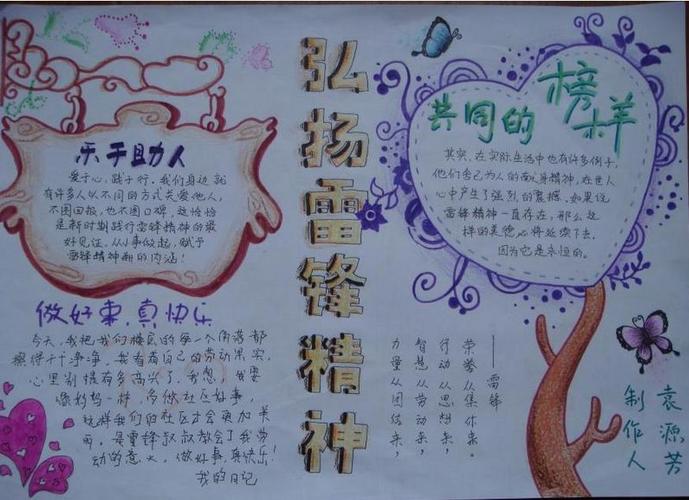 弘扬雷锋精神
乐于助人
爱于心，践于行。我们身边就
有许多人以不同的方式关爱他人，
不图回报，也不图口碑，这恰恰
是新时期践行雷锋精神的最
好见证。从小事做起，赋予
雷锋精神新的内涵！
共同的榜样
其实，在实际生活中也有许多例子，
他们舍己为人的献身精神，在世人
心中产生了强烈的震撼。如果说
雷锋精神一直存在，那么这
样的美德必将延续下去，
因为它是永恒的。
做好事，真快乐
今天，我把我们楼层的每一个角落都
擦得干干净净，我看着自己的劳动果实，
心里别提有多高兴了。我想，我要
像妈妈一样，多做社区好事，
这样我们的社区才会更加美
丽，是雷锋叔叔教会了我劳
动的意义，做好事，真快乐！
我的日记
——雷锋
荣誉从集体来。
行动从思想来，
智慧从劳动来，
力量从团结来，
制作人
袁源芳